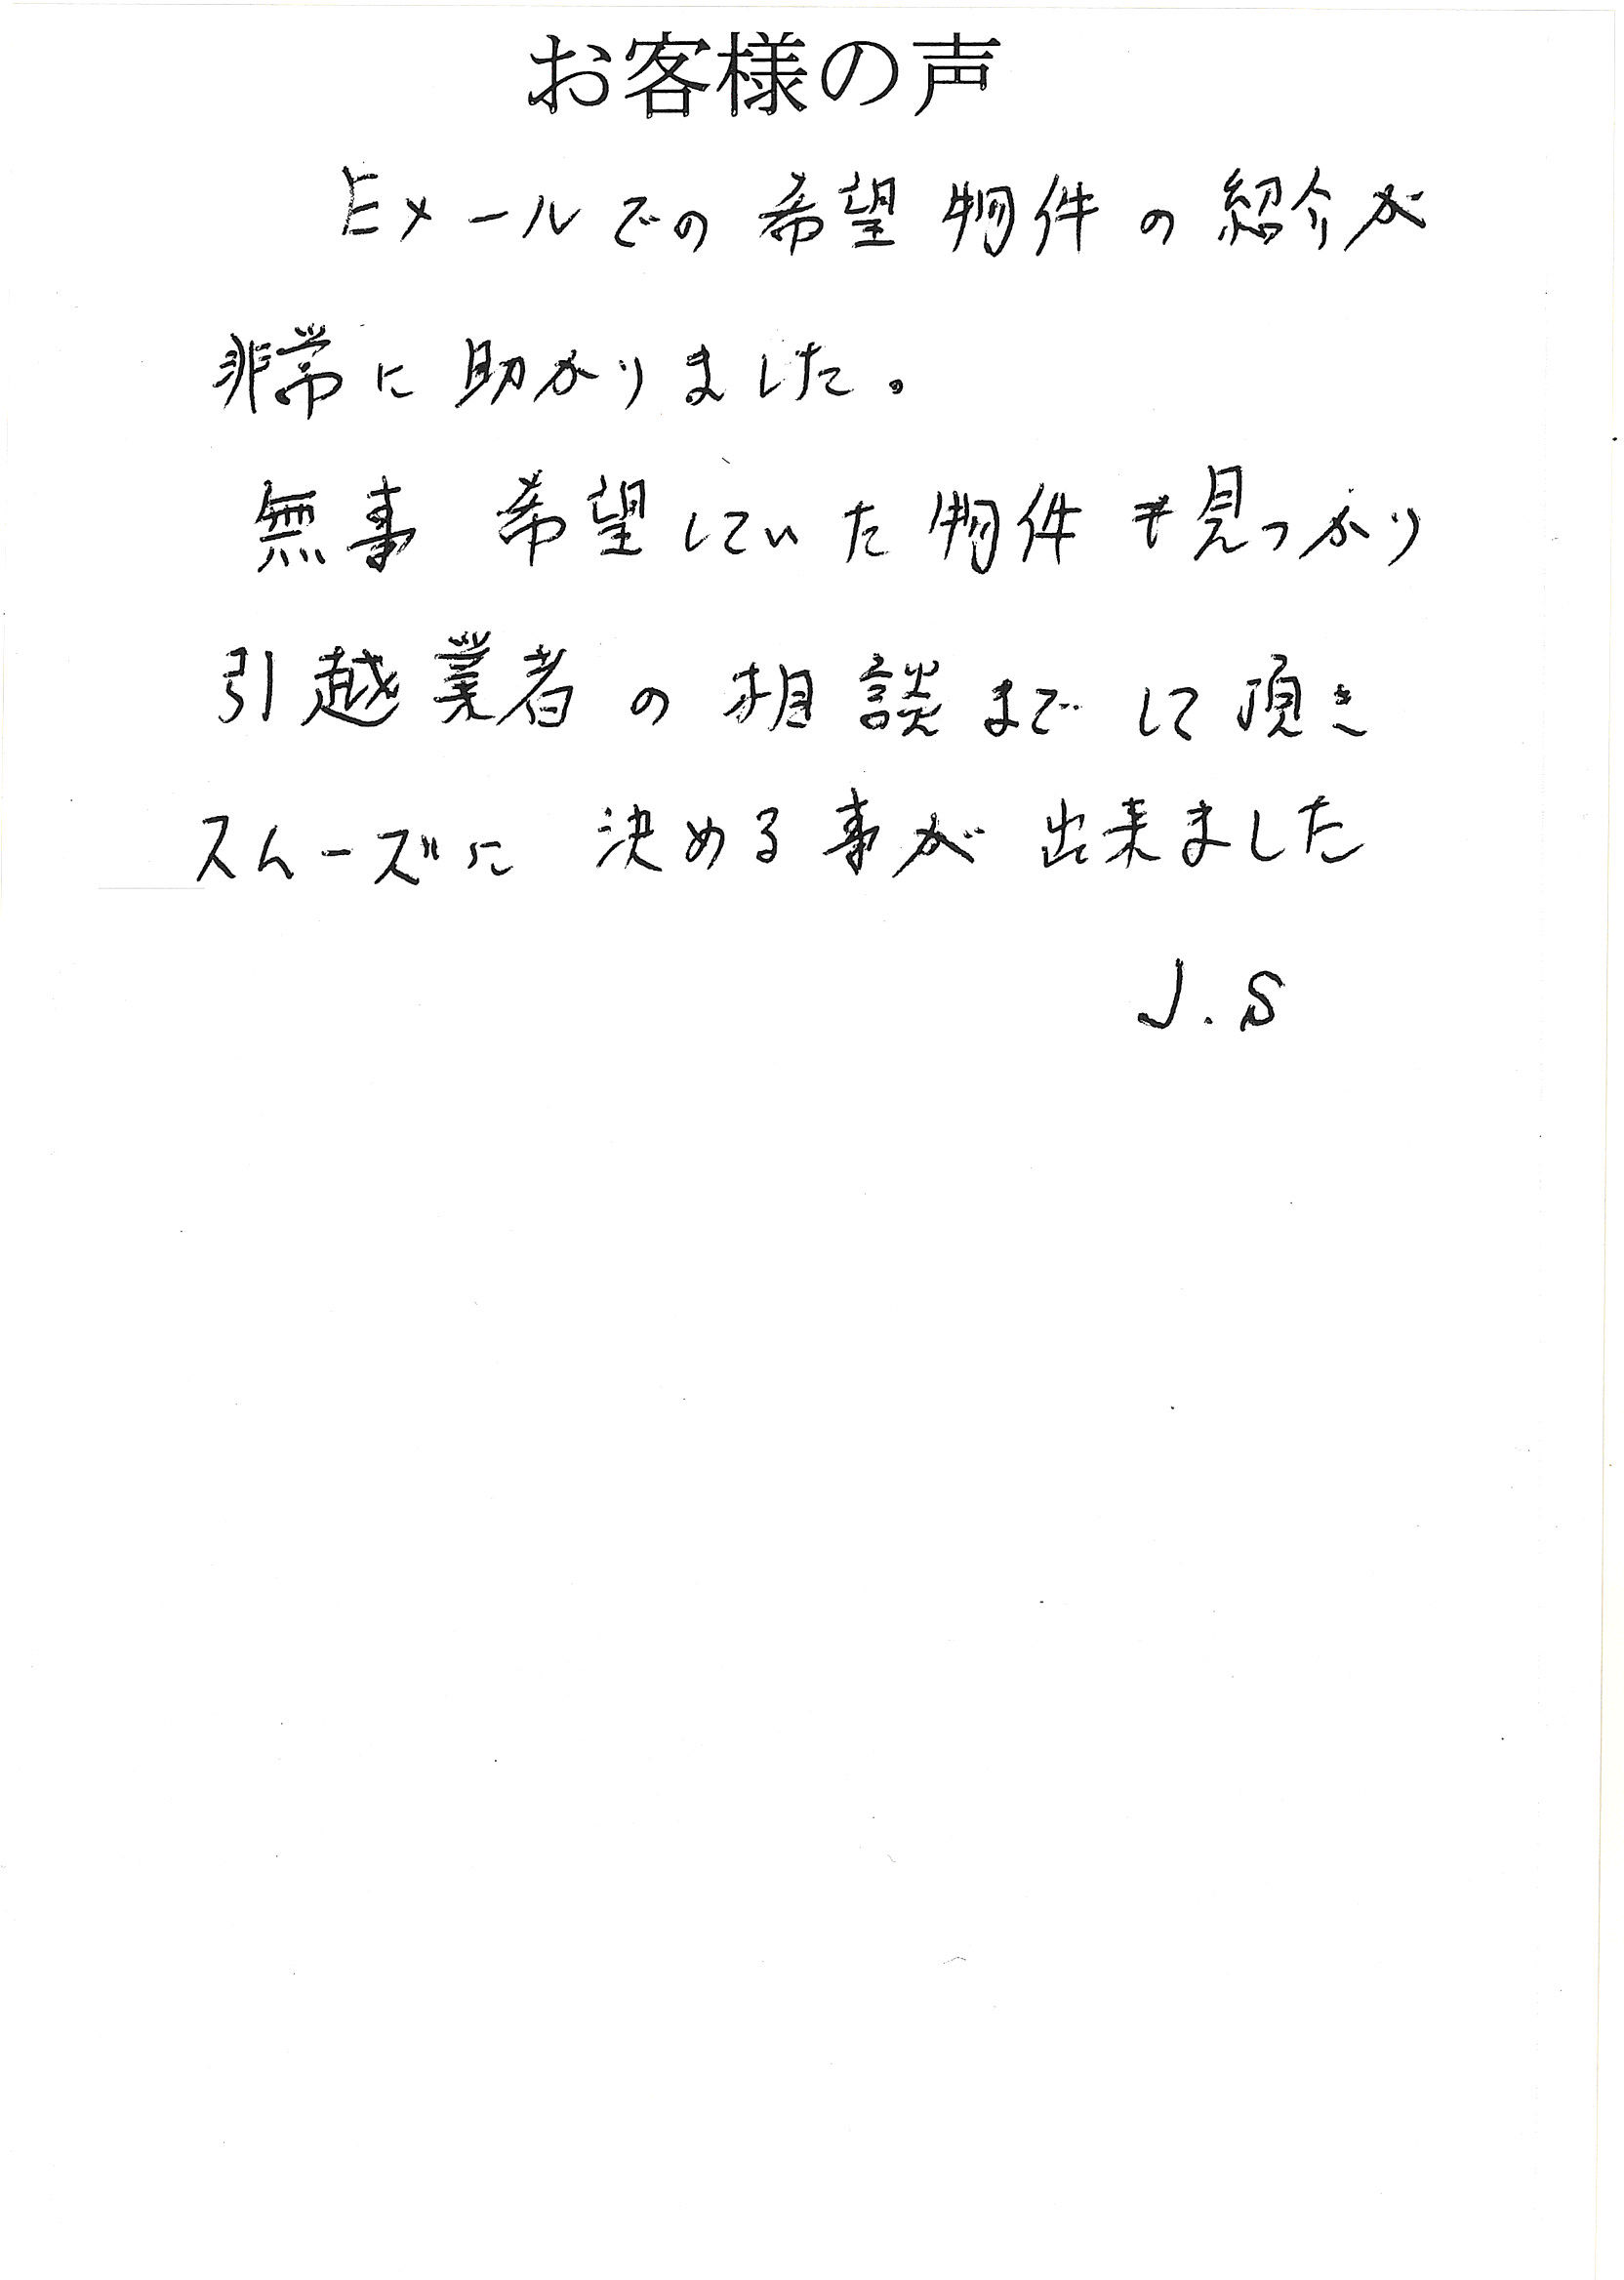 お客様の声
Eメールでの希望物件の紹介が
非常に助かりました。
無事 希望していた物件も見つかり
引越業者の相談までして頂き
スムーズに 決める事が出来ました
J.S